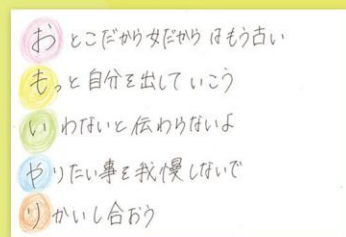 おとこだから女だからはもう古い
もっと自分を出していこう
いわないと伝わらないよ
やりたい事を我慢しないで
りかいし合おう